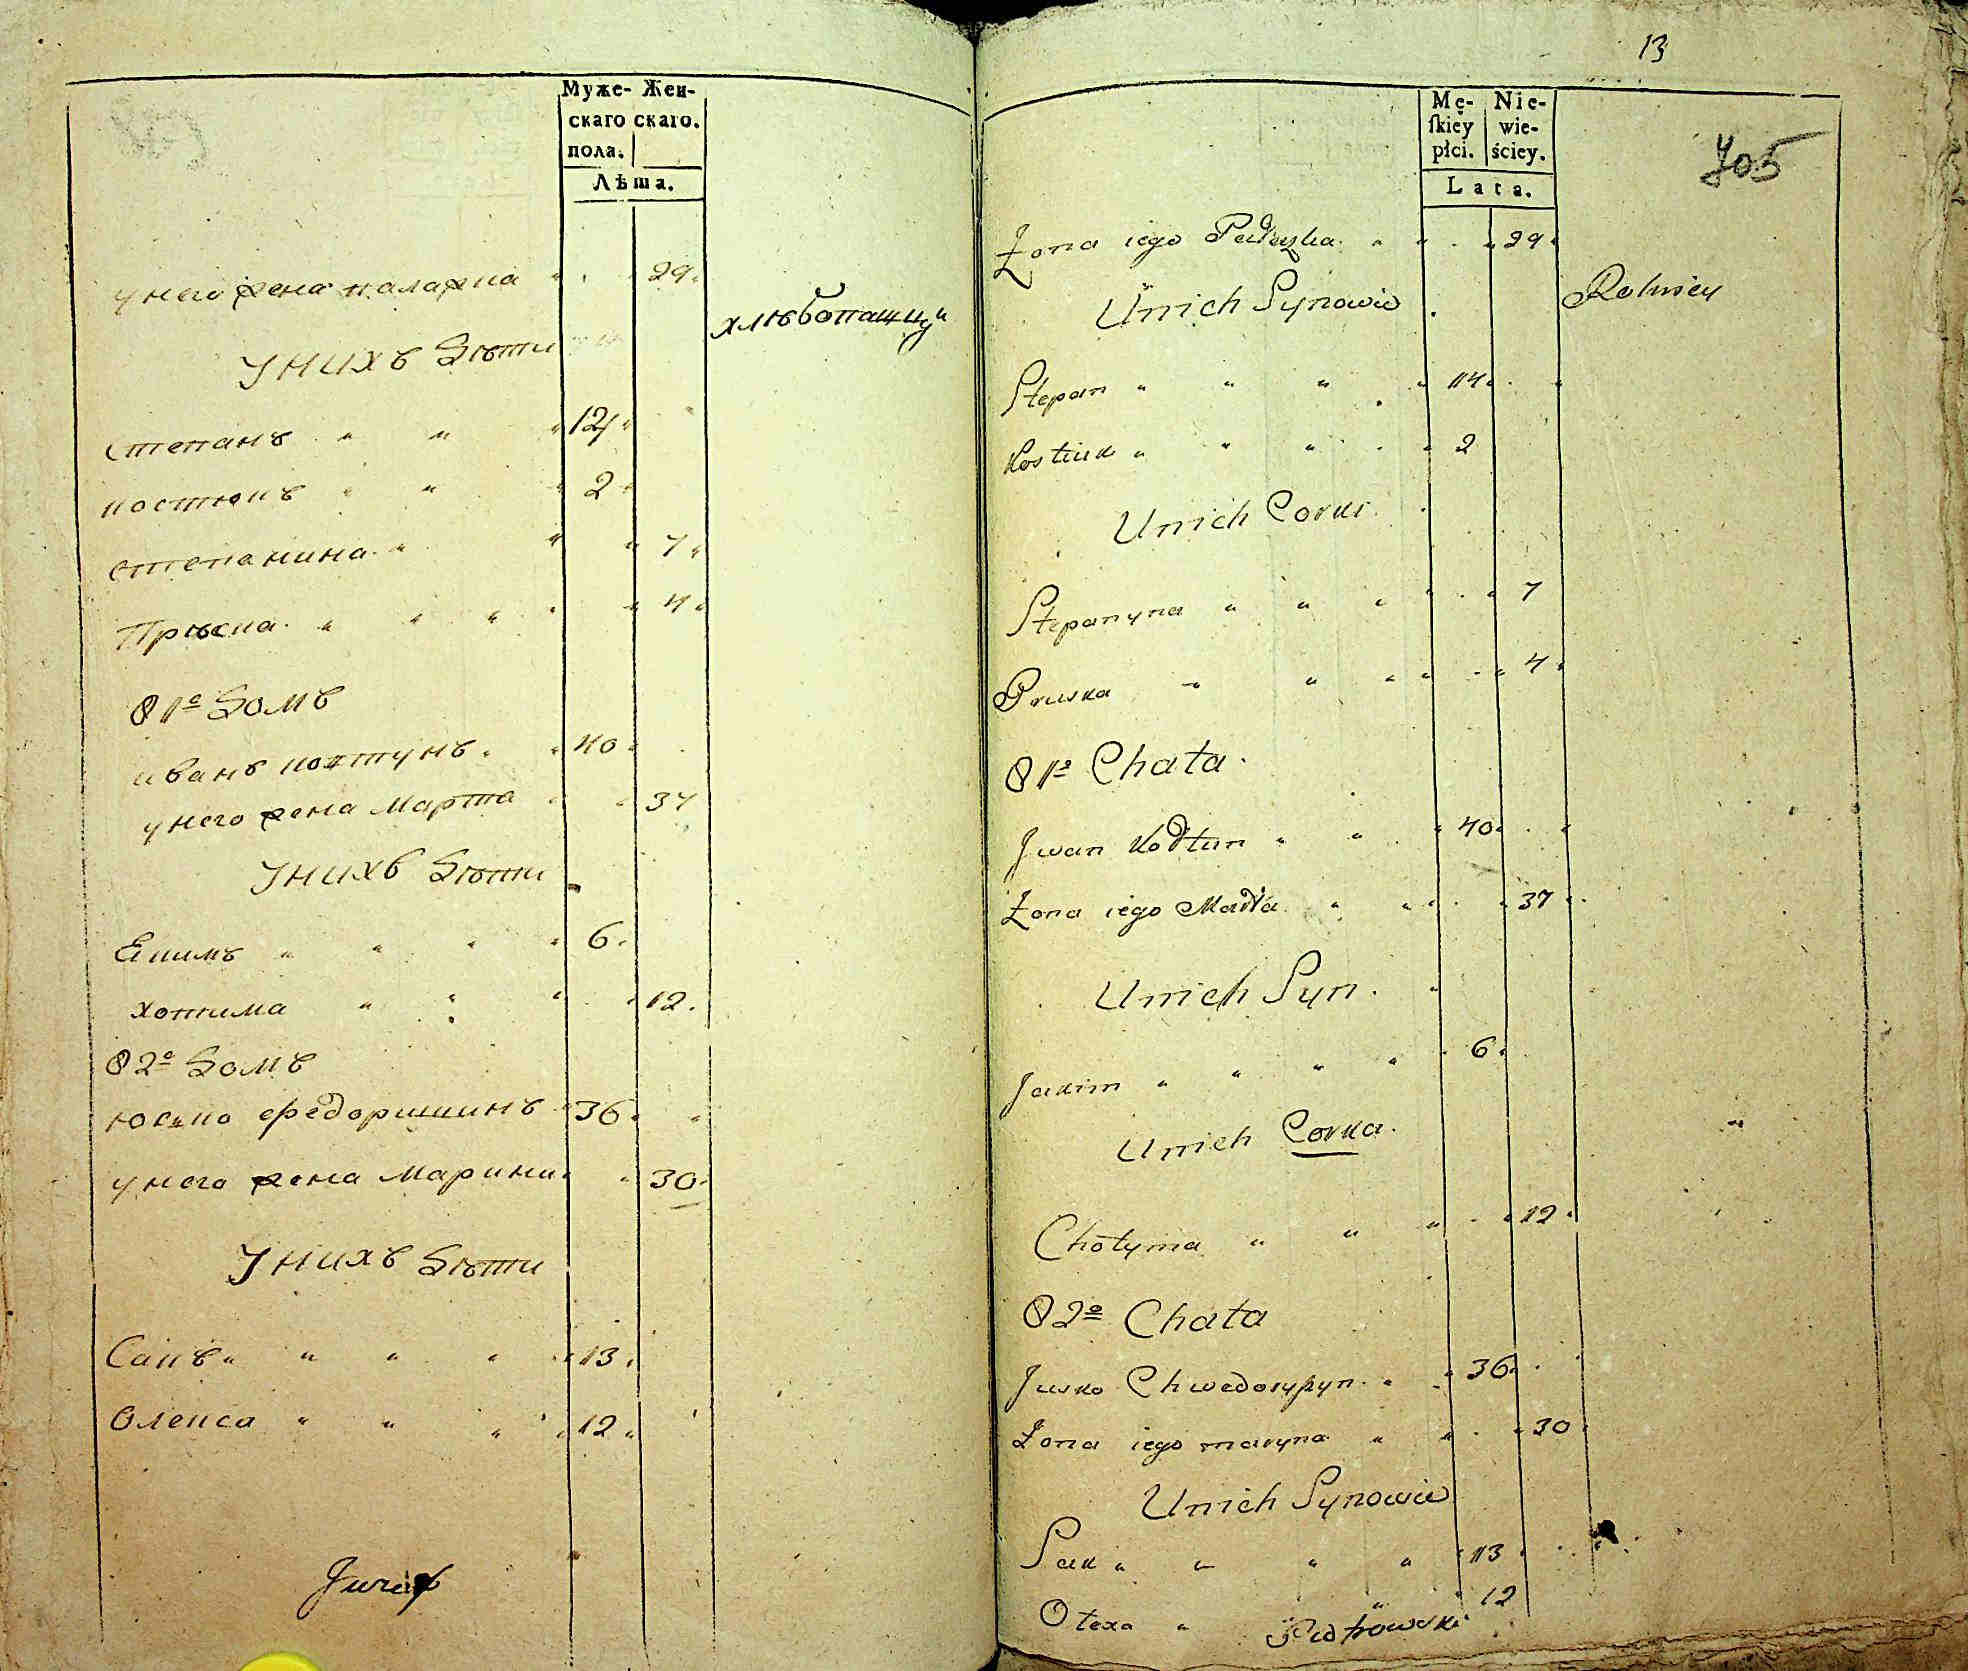 Муже- Жен-
скаго скаго.
пола.
Лѣта.
у него жена палажка 29
хлѣбопашцы
У нихъ дѣти
степанъ 14
костюкъ 2
степанина 7
Прѣска 4
81º домъ
иванъ колтунъ 40
у него жена Марта 37
У нихъ дѣти
Екимъ 6
хотима 12
82º домъ
юсько федоришинъ 36
у него жена Марина 30
У нихъ дѣти
Сакъ 13
Олекса 12
13
705
Mę- Nie-
ſkiey wie-
płci. ściey.
Lata.
Żona iego 29
Unich Synowie
Rolnicy
Stepan 14
Kostiuk 2
Unich Corki
Stepanyna 7
Pruska 4
81º Chata
Jwan Kołtun 40
Żona iego Marta 37
Unich Syn
Jakim 6
Unich Corka
Chotyma 12
82º Chata
Jusko Chwedoryszyn 36
Żona iego maryna 30
Unich Synowie
Sak 13
Olexa 12